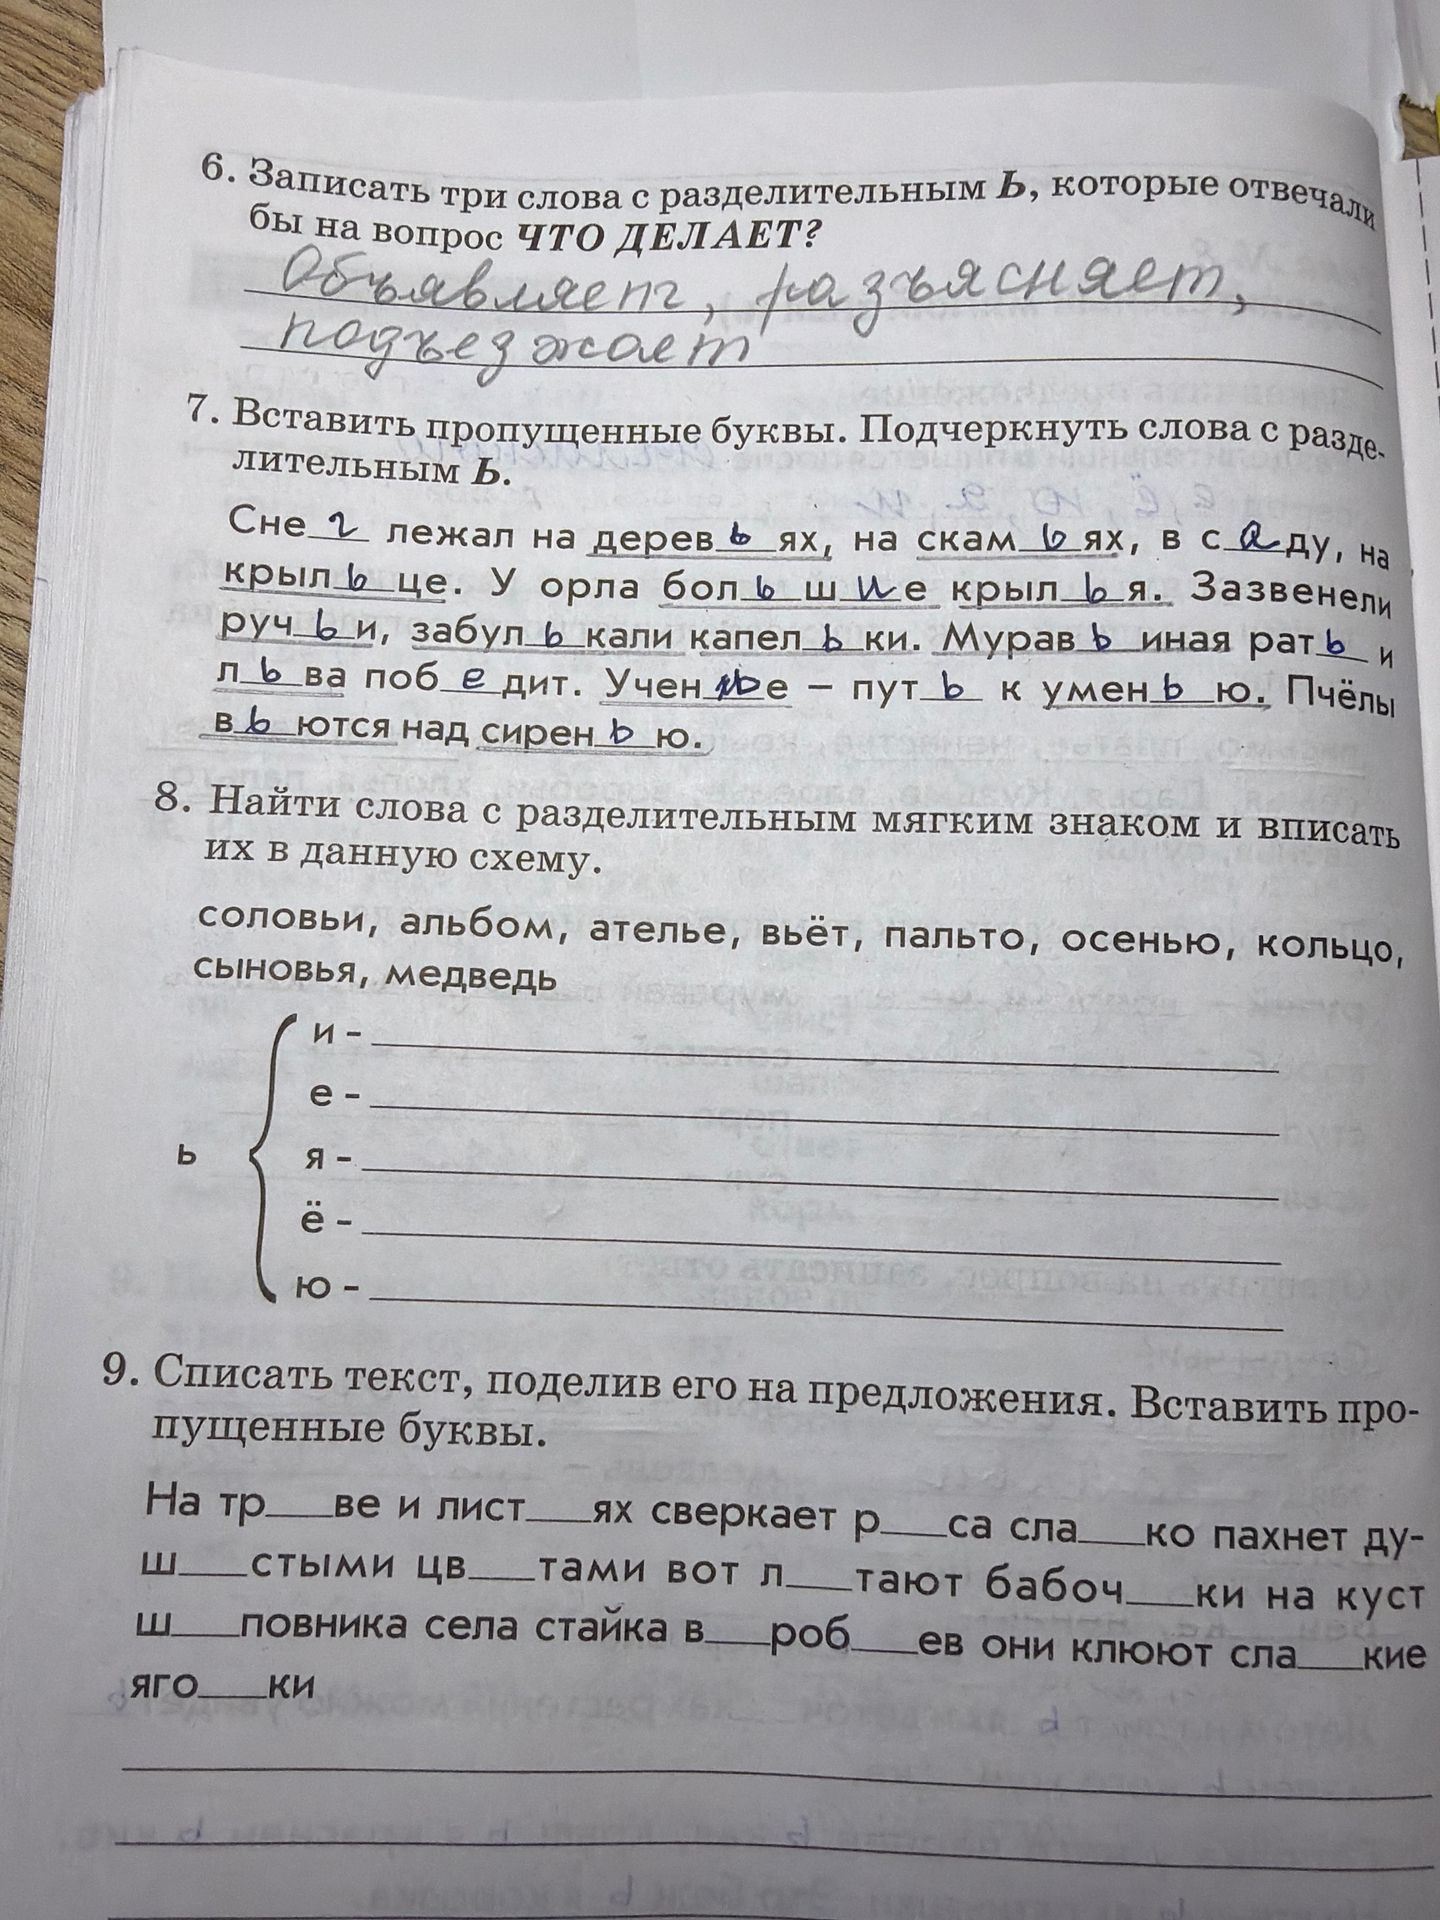 6. Записать три слова с разделительным Ь, которые отвечали
бы на вопрос ЧТО ДЕЛАЕТ?
Объявляет, разъясняет,
подъезжает
7. Вставить пропущенные буквы. Подчеркнуть слова с разде-
лительным Ь.
Сне г лежал на дерев ь ях, на скам ь ях, в с а ду, на
крыл ь це. У орла бол ь ш и е крыл ь я. Зазвенели
руч ь и, забул ь кали капел ь ки. Мурав ь иная рат ь и
л ь ва поб е дит. Учен ь е – пут ь к умен ь ю. Пчёлы
в ь ются над сирен ь ю.
8. Найти слова с разделительным мягким знаком и вписать
их в данную схему.
соловьи, альбом, ателье, вьёт, пальто, осенью, кольцо,
сыновья, медведь
и –
е –
ь я –
ё –
ю –
9. Списать текст, поделив его на предложения. Вставить про-
пущенные буквы.
На тр___ве и лист___ях сверкает р___са сла___ко пахнет ду-
ш___стыми цв___тами вот л___тают бабоч___ки на куст
ш___повника села стайка в___роб___ев они клюют сла___кие
яго___ки